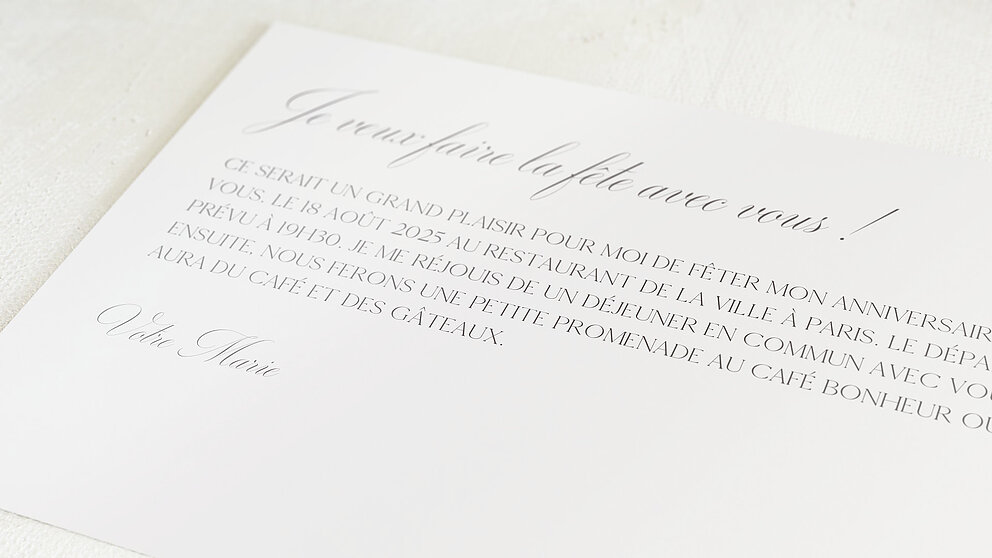 Je veux faire la fête avec vous !
CE SERAIT UN GRAND PLAISIR POUR MOI DE FÊTER MON ANNIVERSAIR
VOUS, LE 18 AOÛT 2025 AU RESTAURANT DE LA VILLE À PARIS. LE DÉPA
PRÉVU À 19H30. JE ME RÉJOUIS DE UN DÉJEUNER EN COMMUN AVEC VOU
ENSUITE, NOUS FERONS UNE PETITE PROMENADE AU CAFÉ BONHEUR OU
AURA DU CAFÉ ET DES GÂTEAUX.
Votre Marie